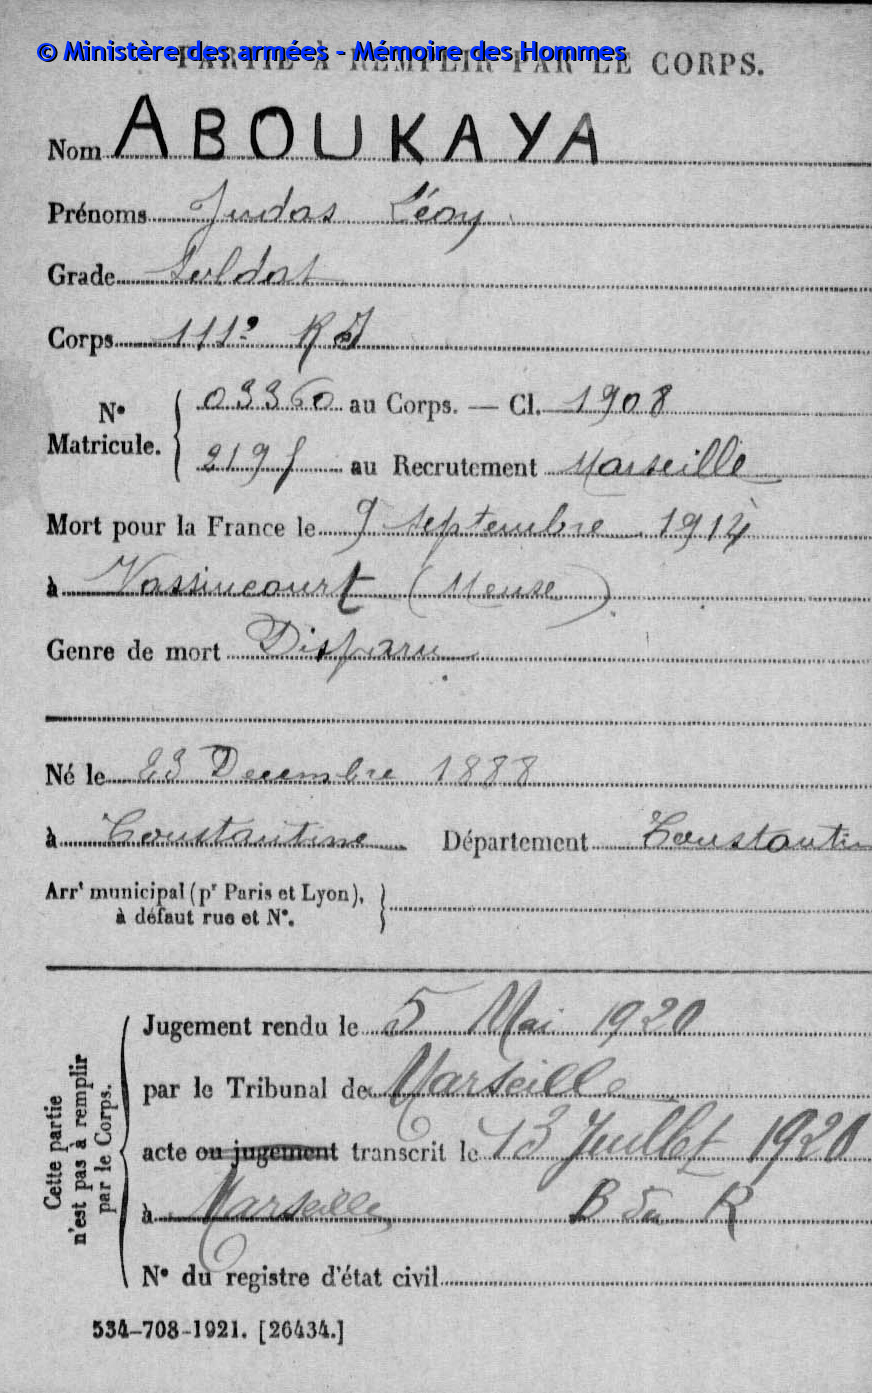 © Ministère des armées - Mémoire des Hommes
PARTIE À REMPLIR PAR LE CORPS.
Nom ABOUKAYA
Prénoms Judas Léon
Grade Soldat
Corps 111e R I
N° Matricule. 03360 au Corps. — Cl. 1908
219 au Recrutement Marseille
Mort pour la France le 9 septembre 1914
à Vassincourt (Meuse)
Genre de mort Disparu
Né le 23 Decembre 1888
à Constantine Département Constantin
Arrt municipal (pr Paris et Lyon),
à défaut rue et N°.
Cette partie
n'est pas à remplir
par le Corps.
Jugement rendu le 5 Mai 1920
par le Tribunal de Marseille
acte ou jugement transcrit le 13 Juillet 1920
à Marseille B du R
N° du registre d'état civil
534-708-1921. [26434.]